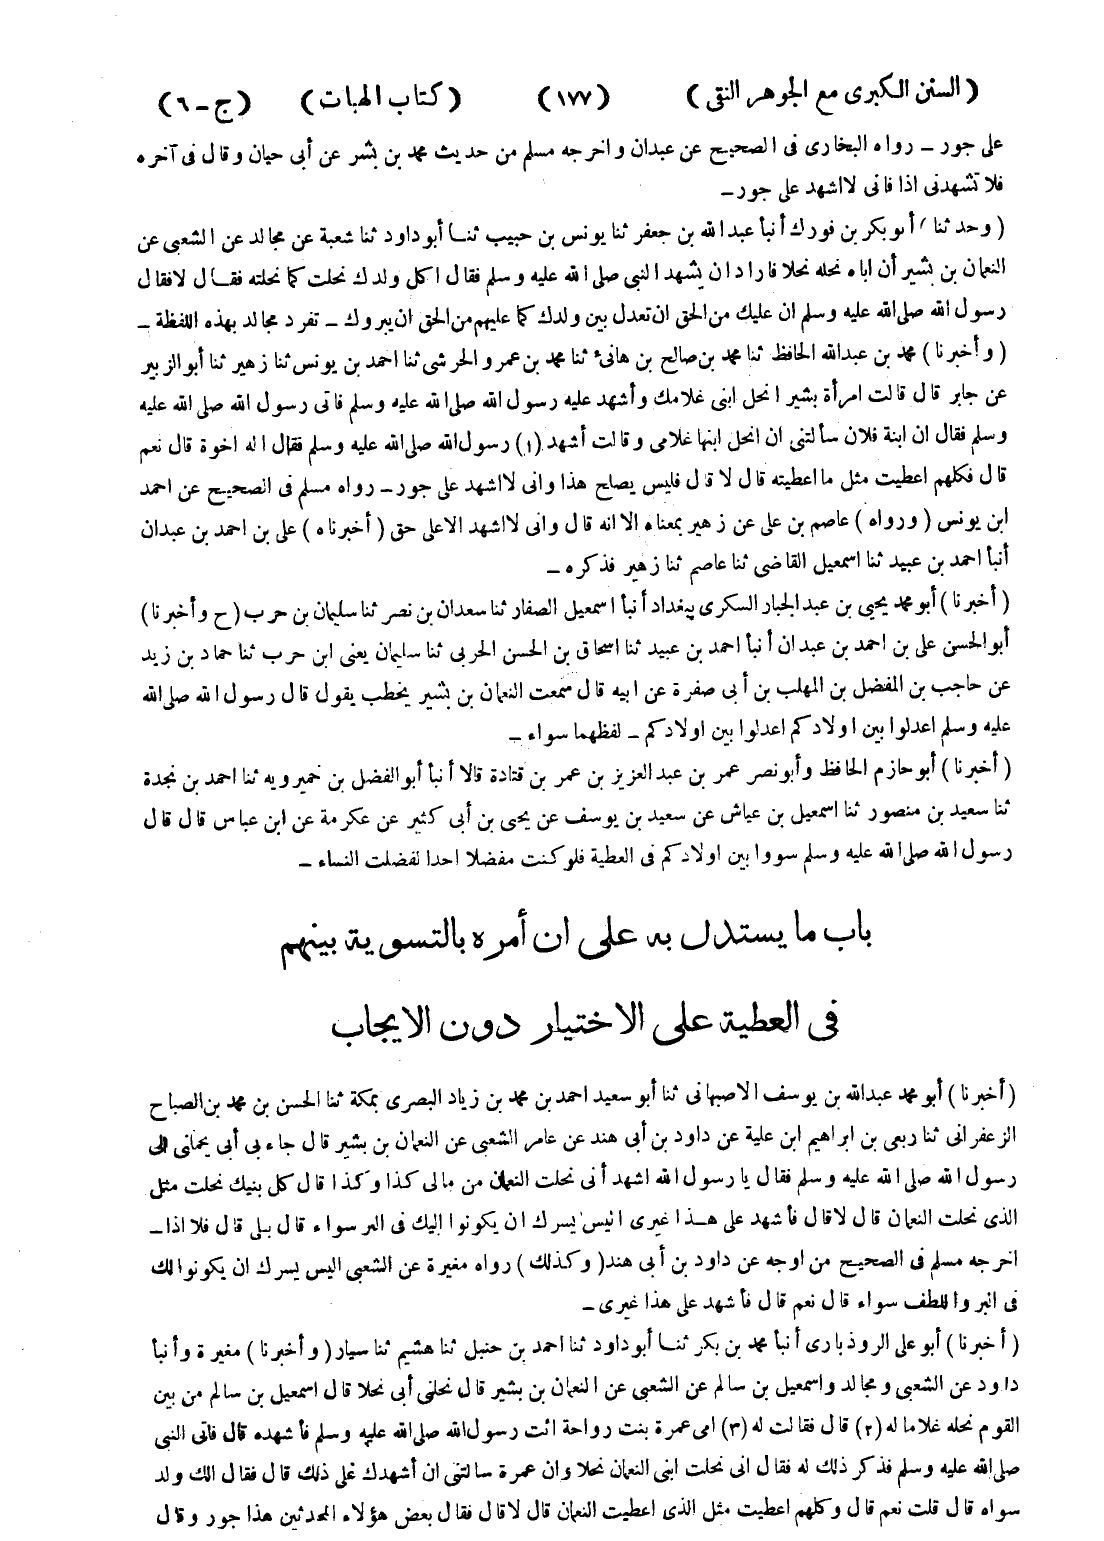 ( السنن الكبرى مع الجوهر النقى ) ( ١٧٧ ) ( كتاب الهبات ) ( ج - ٦ )
على جور - رواه البخارى فى الصحيح عن عبدان واخرجه مسلم من حديث محمد بن بشر عن أبى حيان وقال فى آخره
فلا تشهدنى اذا فانى لا اشهد على جور -
( وحدثنا ) أبو بكر بن فورك أنبأ عبد الله بن جعفر ثنا يونس بن حبيب ثنا أبو داود ثنا شعبة عن مجالد عن الشعبى عن
النعمان بن بشير أن اباه نحله نحلا فاراد ان يشهد النبى صلى الله عليه وسلم فقال اكل ولدك نحلت كما نحلته فقال لا فقال
رسول الله صلى الله عليه وسلم ان عليك من الحق ان تعدل بين ولدك كما عليهم من الحق ان يبروك - تفرد مجالد بهذه اللفظة -
( وأخبرنا ) محمد بن عبد الله الحافظ ثنا محمد بن صالح بن هانئ ثنا محمد بن عمرو الحرشى ثنا احمد بن يونس ثنا زهير ثنا أبو الزبير
عن جابر قال قالت امرأة بشير انحل ابنى غلامك وأشهد عليه رسول الله صلى الله عليه وسلم فاتى رسول الله صلى الله عليه
وسلم فقال ان ابنة فلان سألتنى ان انحل ابنها غلامى وقالت أشهد (١) رسول الله صلى الله عليه وسلم فقال اله اخوة قال نعم
قال فكلهم اعطيت مثل ما اعطيته قال لا قال فليس يصلح هذا وانى لا اشهد على جور - رواه مسلم فى الصحيح عن احمد
ابن يونس ( ورواه ) عاصم بن على عن زهير بمعناه الا انه قال وانى لا اشهد الا على حق ( أخبرناه ) على بن احمد بن عبدان
أنبأ احمد بن عبيد ثنا اسمعيل القاضى ثنا عاصم ثنا زهير فذكره -
( أخبرنا ) أبو محمد يحيى بن عبد الجبار السكرى ببغداد أنبأ اسمعيل الصفار ثنا سعدان بن نصر ثنا سليمان بن حرب ( ح وأخبرنا )
أبو الحسن على بن احمد بن عبدان أنبأ احمد بن عبيد ثنا اسحاق بن الحسن الحربى ثنا سليمان يعنى ابن حرب ثنا حماد بن زيد
عن حاجب بن المفضل بن المهلب بن أبى صفرة عن ابيه قال سمعت النعمان بن بشير يخطب يقول قال رسول الله صلى الله
عليه وسلم اعدلوا بين اولادكم اعدلوا بين اولادكم - لفظهما سواء -
( أخبرنا ) أبو حازم الحافظ وأبو نصر عمر بن عبد العزيز بن عمر بن قتادة قالا أنبأ أبو الفضل بن خميرويه ثنا احمد بن نجدة
ثنا سعيد بن منصور ثنا اسمعيل بن عياش عن سعيد بن يوسف عن يحيى بن أبى كثير عن عكرمة عن ابن عباس قال قال
رسول الله صلى الله عليه وسلم سووا بين اولادكم فى العطية فلو كنت مفضلا احدا لفضلت النساء -
باب ما يستدل به على ان أمره بالتسوية بينهم
فى العطية على الاختيار دون الايجاب
( أخبرنا ) أبو محمد عبد الله بن يوسف الاصبهانى ثنا أبو سعيد احمد بن محمد بن زياد البصرى بمكة ثنا الحسن بن محمد بن الصباح
الزعفرانى ثنا ربعى بن ابراهيم ابن علية عن داود بن أبى هند عن عامر الشعبى عن النعمان بن بشير قال جاء بى أبى يحملنى الى
رسول الله صلى الله عليه وسلم فقال يا رسول الله اشهد أنى نحلت النعمان من مالى كذا وكذا قال كل بنيك نحلت مثل
الذى نحلت النعمان قال لا قال فأشهد على هذا غيرى اليس يسرك ان يكونوا اليك فى البر سواء قال بلى قال فلا اذا -
اخرجه مسلم فى الصحيح من اوجه عن داود بن أبى هند ( وكذلك ) رواه مغيرة عن الشعبى اليس يسرك ان يكونوا لك
فى البر واللطف سواء قال نعم قال فأشهد على هذا غيرى -
( أخبرنا ) أبو على الروذبارى أنبأ محمد بن بكر ثنا أبو داود ثنا احمد بن حنبل ثنا هشيم ثنا سيار ( وأخبرنا ) مغيرة وأنبأ
داود عن الشعبى ومجالد واسمعيل بن سالم عن الشعبى عن النعمان بن بشير قال نحلنى أبى نحلا قال اسمعيل بن سالم من بين
القوم نحله غلاما له (٢) قال فقالت له (٣) امى عمرة بنت رواحة ائت رسول الله صلى الله عليه وسلم فأشهده قال فاتى النبى
صلى الله عليه وسلم فذكر ذلك له فقال انى نحلت ابنى النعمان نحلا وان عمرة سالتنى ان أشهدك على ذلك قال فقال الك ولد
سواه قال قلت نعم قال وكلهم اعطيت مثل الذى اعطيت النعمان قال لا قال فقال بعض هؤلاء المحدثين هذا جور وقال